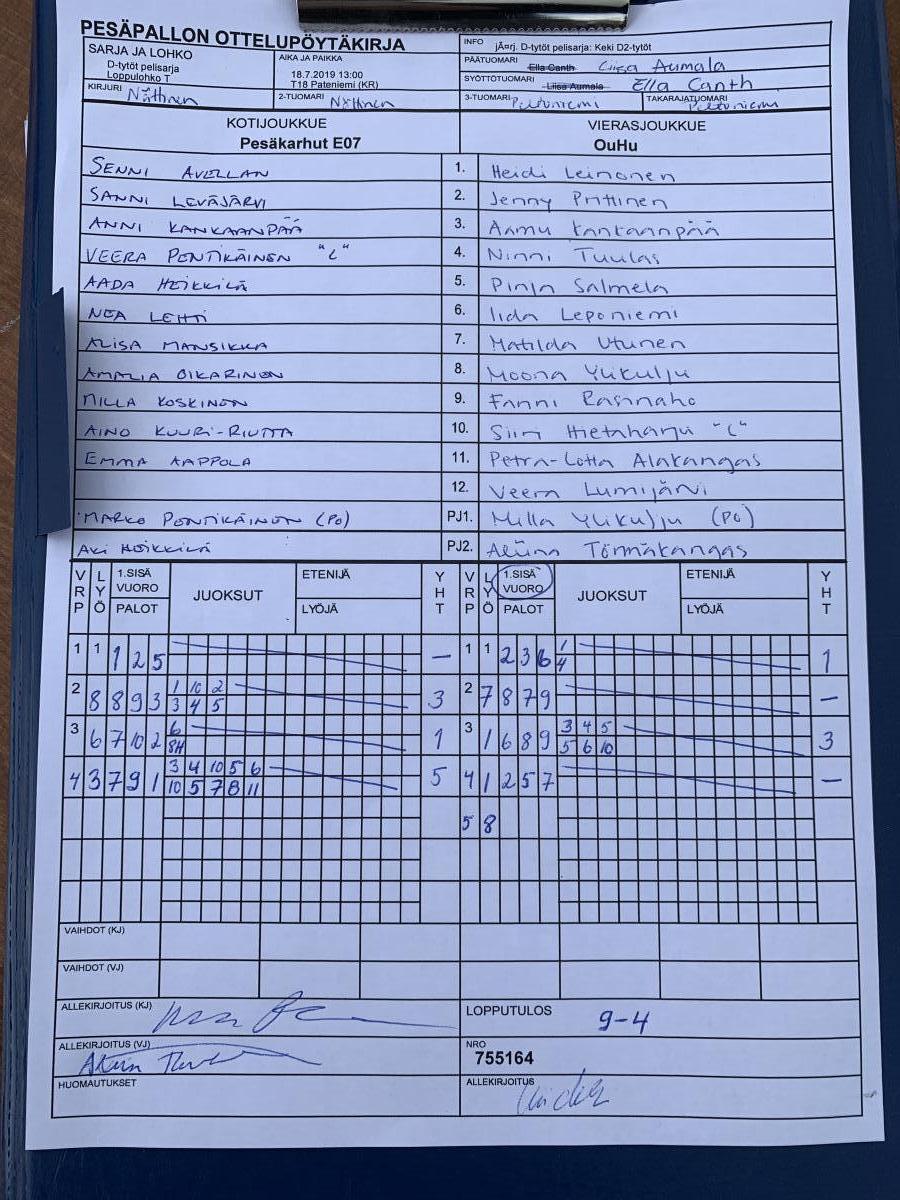 PESÄPALLON OTTELUPÖYTÄKIRJA
SARJA JA LOHKO
D-tytöt pelisarja
Loppulohko T
AIKA JA PAIKKA
18.7.2019 13:00
T18 Pateniemi (KR)
INFO jÃ¤rj. D-tytöt pelisarja: Keki D2-tytöt
PÄÄTUOMARI Ella Canth Liisa Aumala
SYÖTTÖTUOMARI Liisa Aumala Ella Canth
KIRJURI Näthnen
2-TUOMARI Näthnen
3-TUOMARI Peltoniemi
TAKARAJATUOMARI Peltoniemi
KOTIJOUKKUE
Pesäkarhut E07
VIERASJOUKKUE
OuHu
SENNI AVELLAN 1. Heidi Leinonen
SANNI LEVÄJÄRVI 2. Jenny Prittinen
ANNI KANKAANPÄÄ 3. Aamu Kankaanpää
VEERA PENTIKÄINEN "C" 4. Ninni Tuulas
AADA HEIKKILÄ 5. Pinja Salmela
NEA LEHTI 6. Iida Leponiemi
ALISA MANSIKKA 7. Matilda Utunen
AMALIA OIKARINEN 8. Moona Ylikulju
MILLA KOSKINEN 9. Fanni Rasinaho
AINO KUURI-RIUTTA 10. Siiri Hietaharju "C"
EMMA AAPPOLA 11. Petra-Lotta Alakangas
12. Veera Lumijärvi
MARKO PENTIKÄINEN (PO) PJ1. Milla Ylikulju (PO)
AKI HEIKKILÄ PJ2. Törmäkangas
VRP LYÖ 1.SISÄ VUORO PALOT JUOKSUT ETENIJÄ LYÖJÄ YHT VRP LYÖ 1.SISÄ VUORO PALOT JUOKSUT ETENIJÄ LYÖJÄ YHT
1 1 1 2 5 — 1 1 2 3 6 1 1
4
2 8 8 9 3 1 10 2 3 2 7 8 7 9 —
3 4 5
3 6 7 10 2 6 1 3 1 6 8 9 3 4 5 3
8H 5 6 10
4 3 7 9 1 3 4 10 5 6 5 4 1 2 5 7 —
10 5 7 8 11
5 8
VAIHDOT (KJ)
VAIHDOT (VJ)
ALLEKIRJOITUS (KJ)
LOPPUTULOS 9-4
ALLEKIRJOITUS (VJ)
NRO
755164
HUOMAUTUKSET
ALLEKIRJOITUS